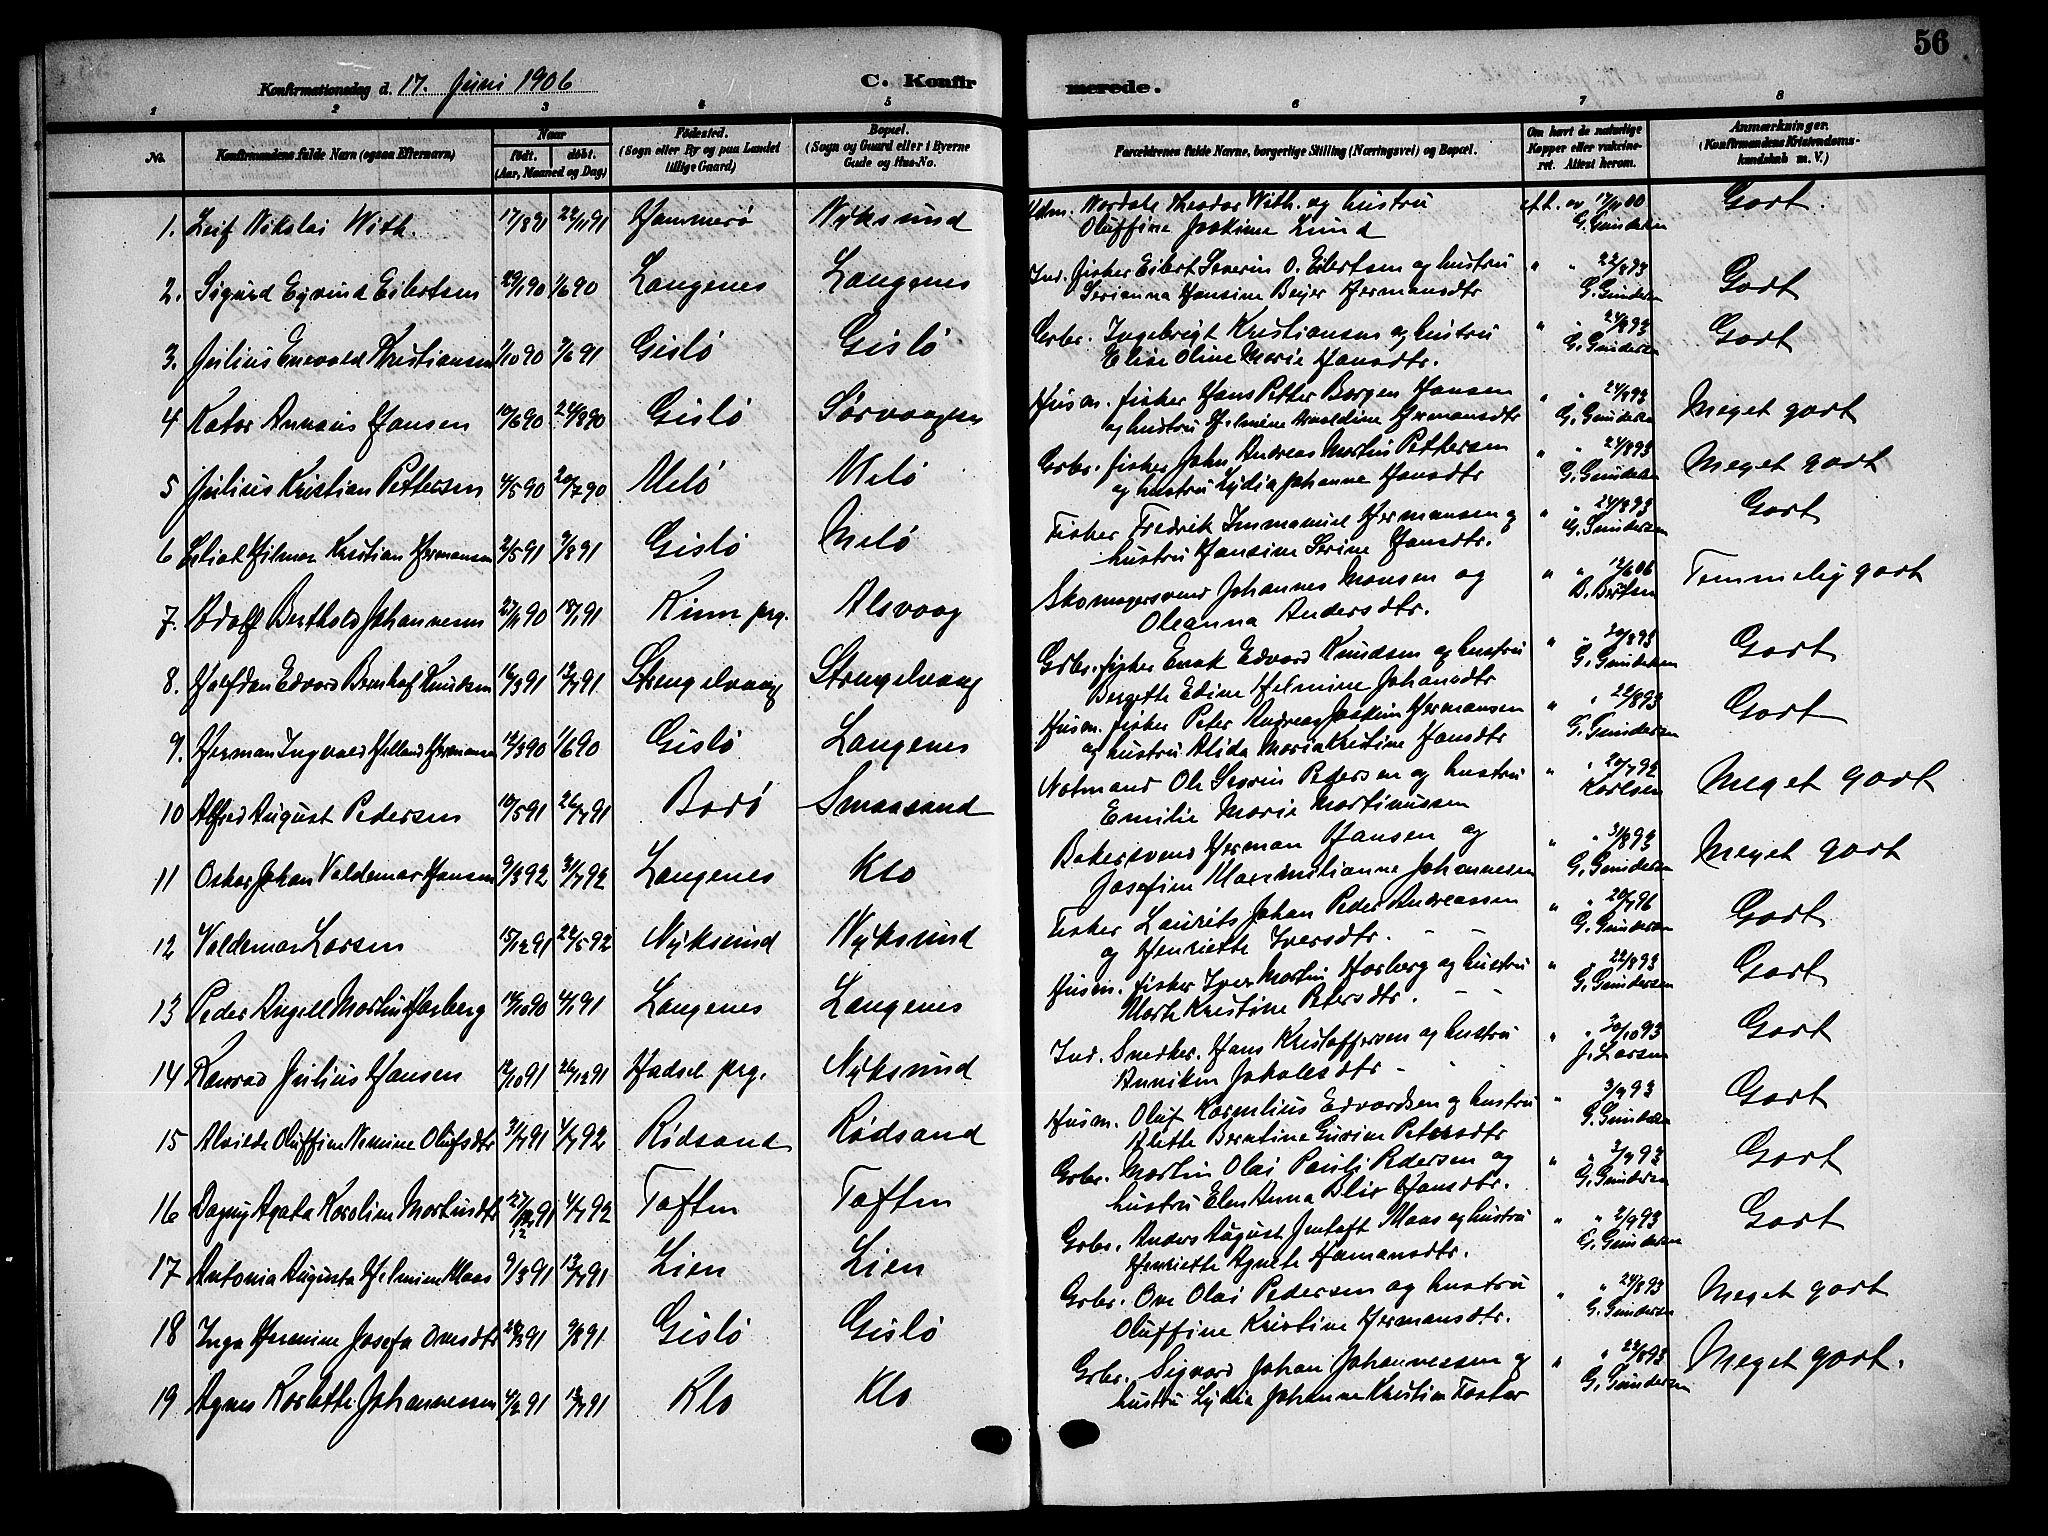 56
Konfirmationsdag d. 17. Juni 1906 C. Konfirmerede.
1 2 3 4 5 6 7 8
No. Konfirmandens fulde Navn (ogsaa Efternavn) Naar født. døbt. (Aar, Maaned og Dag) Fødested. (Sogn eller By og paa Landet tillige Gaard) Bopæl. (Sogn og Gaard eller i Byerne Gade og Hus-No.) Forældrenes fulde Navne, borgerlige Stilling (Næringsvei) og Bopæl. Om havt de naturlige Kopper eller vaccineret. Attest herom. Anmærkninger. (Konfirmandens Kristendomskundskab m. V.)
1. Leif Nikolai With. 22/11 91 Hammerø Nyksund Theodor With. og hustru Godt.
Oluffine Joakime Lund G. Gundersen
2. Sigurd Eyvind Eilertsen 29/1 90 1/6 90 Langenes Langenes Ind. fisker Eilert Severin O. Eilertsen og hustru " " 22/8 93 Godt
Serianna Hansine Beyer Hermansdtr G. Gundersen
3. Julius Enevald Kristiansen 7/6 91 Gislø Gislø Grbr. Ingebrigt Kristiansen og hustru " " 24/8 93 Godt
Elise Oline Marie Hansdtr. G. Gundersen
4 Kator Annæus Hansen 10/6 90 24/8 90 Gislø Sørvaagen Husm. fisker Hans Petter Borgen Hansen " " 24/8 93 Meget godt
og hustru Helmine Hermansdtr G. Gundersen
5 Julius Kristian Pettersen 4/5 90 20/7 90 Melø Melø Grbr. fisker John Andreas Martin Pettersen " " 24/8 93 Meget godt
og hustru Lydia Johanne Hansdtr G. Gundersen
6 Hilmar Kristian Hermansen 2/5 91 9/8 91 Gislø Melø Fisker Fredrik Immanuel Hermansen og " " 24/8 93 Godt
hustru Hansine Serine Hansdtr. G. Gundersen
7. Adolf Berthold Johannesen 27/11 90 18/1 91 Kinn prg. Alsvaag Skomagersvend Johannes Monsen og " " 12/6 06 Temmelig godt
Oleanna Andersdtr.
8. Halfdan Edvard Bernhof Knudsen 16/3 91 12/7 91 Strengelvaag Strengelvaag Grbr. fisker Enok Edvard Knudsen og hustru " " Godt
Bergette Edine Helmine Johansdtr G. Gundersen
9. Herman Ingvald Helland Hermansen 12/3 90 1/6 90 Gislø Langenes Husm. fisker Peter Andreas Joakim Hermansen " " 22/8 93 Godt
og hustru Alida Maria Kristine Hansdtr G. Gundersen
10 Alfred August Pedersen 10/5 91 26/7 91 Barø Smaasund Notmand Ole Severin Pedersen og hustru " " Meget godt
Emilie Marie Martinussen Karlsen
11 Oskar Johan Valdemar Hansen 9/3 92 31/7 92 Langenes Klo Bakersvend Herman Hansen og " " Meget godt
Josefine Maximilianne Johannesen G. Gundersen
12 Valdemar Larsen 15/12 91 22/5 92 Nyksund Nyksund Fisker Laurits Johan Peder Andreassen " " Godt
og Henriette Iversdtr. - - G. Gundersen
13 Peder Angell Martin Harberg 4/1 91 Langenes Langenes Husm. fisker Iver Martin Harberg og hustru " " 22/8 93 Godt
Marte Kristine Petersdtr. - - G. Gundersen
14 Konrad Julius Hansen 12/10 91 26/12 91 Hadsel prg. Nyksund Ind. Snedker. Hans Kristoffersen og hustru " " 30/10 93 Godt
Anniken Jakobsdtr - - J. Larsen
15 Alvilde Oluffine Nemine Olufsdtr 31/7 91 4/7 92 Rødsand Rødsand Husm. Oluf Kornelius Edvardsen og hustru " Godt
Alette Berntine Gurine Petersdtr G. Gundersen
16 Dagny Agata Karoline Martinsdtr 4/7 92 Toften Toften Grbr. Martin Olai Pauli Pedersen og " " Godt
hustru Elen Anna Hansdtr. G. Gundersen
17 Antonia Augusta Helmine Maas 9/3 91 12/7 91 Lien Lien Grbr. Anders August Jentoft Maas og hustru " " 2/9 93 Godt
Henriette Agnete Hermansdtr. G. Gundersen
18 Inga Hermine Josefa Ovesdtr 9/8 91 Gislø Gislø Grbr. Ove Olai Pedersen og hustru " " 24/8 93 Meget godt
Oluffine Kristine Hermansdtr. G. Gundersen
19 Agnes Karlotte Johannessen 4/2 91 12/7 91 Klo Klo Grbr. Sigvard Johan Johannessen og " " 22/8 93 Meget godt.
hustru Lydia Johanne Kristine G. Gundersen